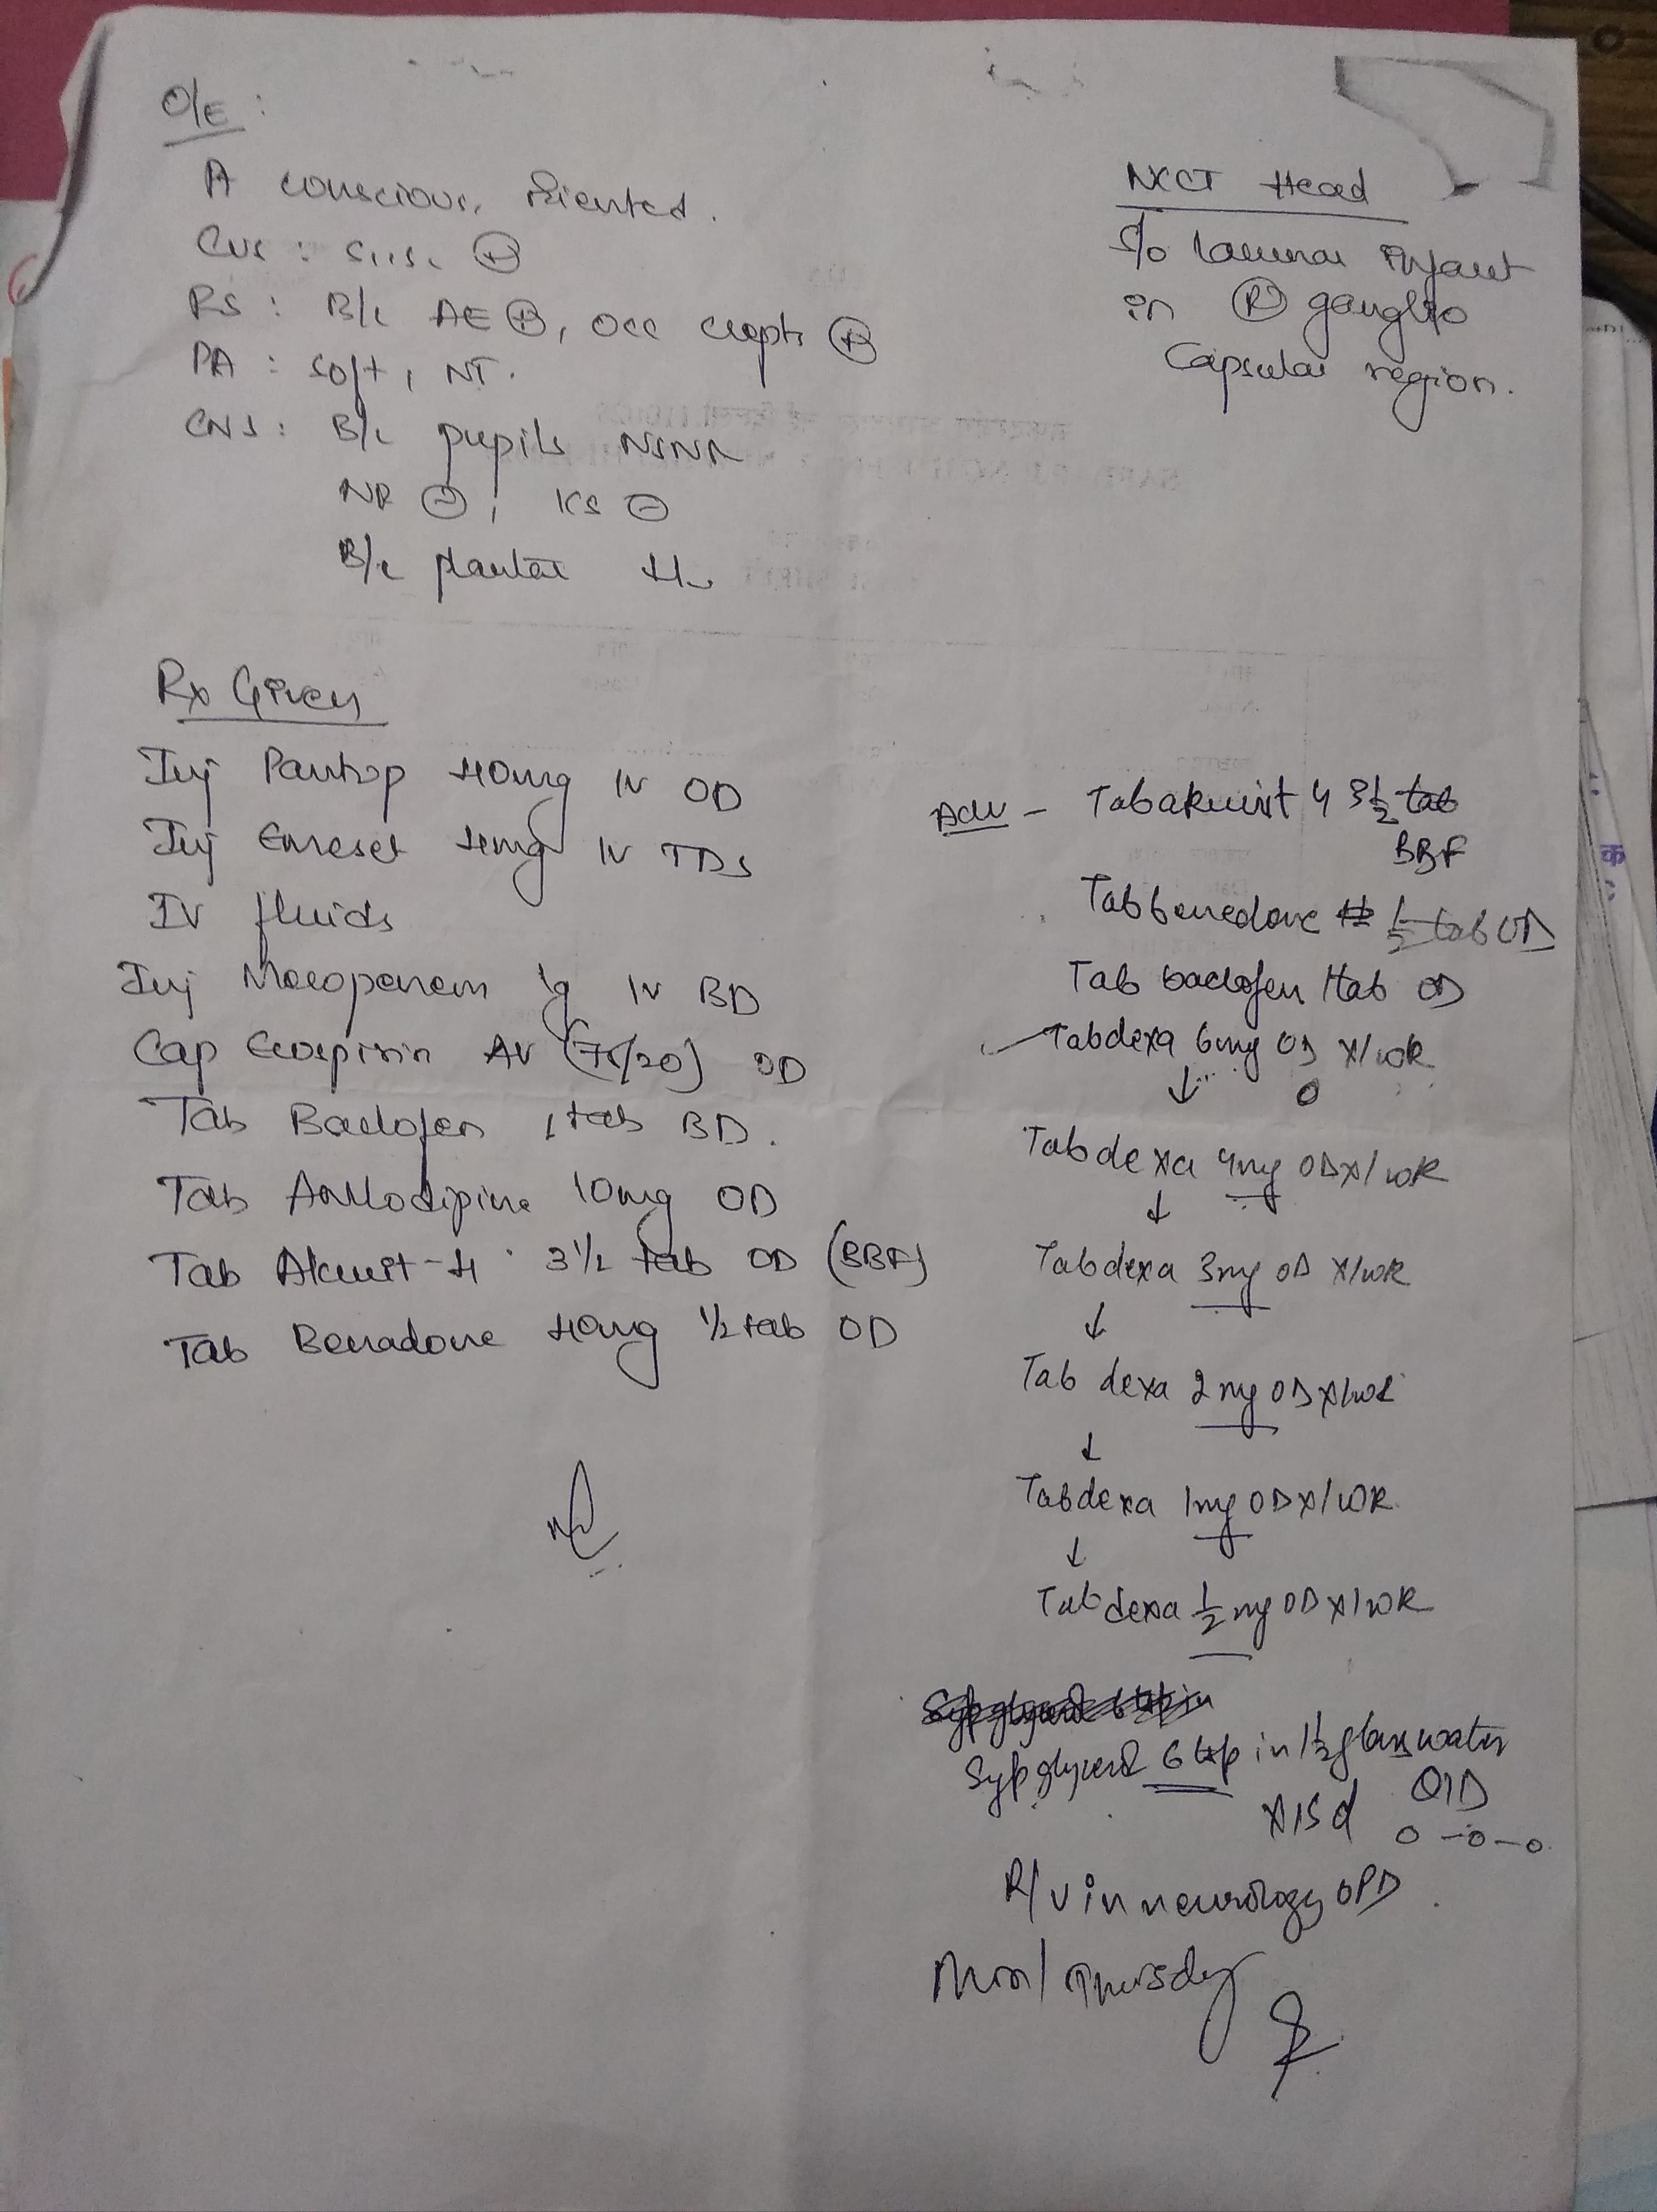 O/E :
A conscious, oriented.
CVS : S1S2 (+)
RS : B/L AE (+), occ crepts (+)
PA : soft, NT.
CNS : B/L pupils NSNR
NR (-), KS (-)
B/L plantar
NCCT Head
S/o lacunar infarct
in (R) ganglio
capsular region.
Rx Given
Inj Pantop 40mg IV OD
Inj Emeset 4mg IV TDS
IV fluids
Inj Meropenem 1g IV BD
Cap Ecosprin AV (75/20) OD
Tab Baclofen 1 tab BD.
Tab Amlodipine 10mg OD
Tab Akurit-4 3 1/2 tab OD (BBF)
Tab Benadone 40mg 1/2 tab OD
Adv - Tab akurit 4 3 1/2 tab
BBF
Tab benedone 1/2 tab OD
Tab baclofen 1tab OD
Tab dexa 6mg OD x 1 wk
↓
Tab dexa 4mg OD x 1 wk
↓
Tab dexa 3mg OD x 1 wk
↓
Tab dexa 2mg OD x 1 wk
↓
Tab dexa 1mg OD x 1 wk
↓
Tab dexa 1/2 mg OD x 1 wk
Syp glycerol 6 tsp in 1 1/2 glass water
x 15 d QID
R/v in neurology OPD
Mon/Thursday